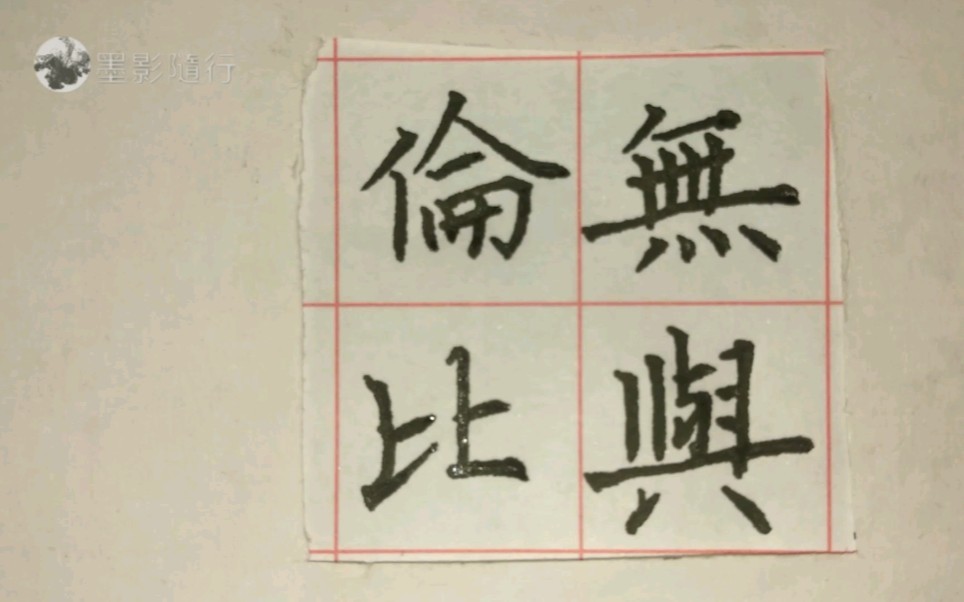 墨影隨行
無與
倫比